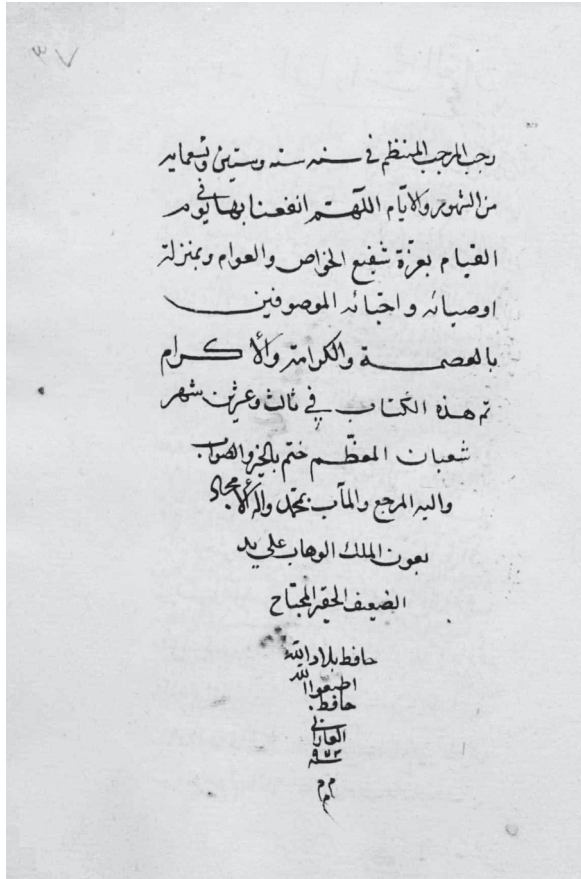 ٣٧
رجب المرجب المنتظم في سنه سته وستين وتسعمايه
من الشهور والايّام اللّهـم انفعنا بها في يوم
القيام بعزّة شفيع الخواص والعوام وبمنزلة
اوصيائه واحبّائه الموصوفين
بالعصمة والكرامة والأكرام
تم هذه الكتاب في ثالث وعشرين شهر
شعبان المعظّم ختم بالخير والصواب
واليه المرجع والمآب بمحمّد وآله الأمجاد
بعون الملك الوهاب على يد
الضعيف الحقير المحتاج
حافظ بلاد الله
حافظ
٩٧٣